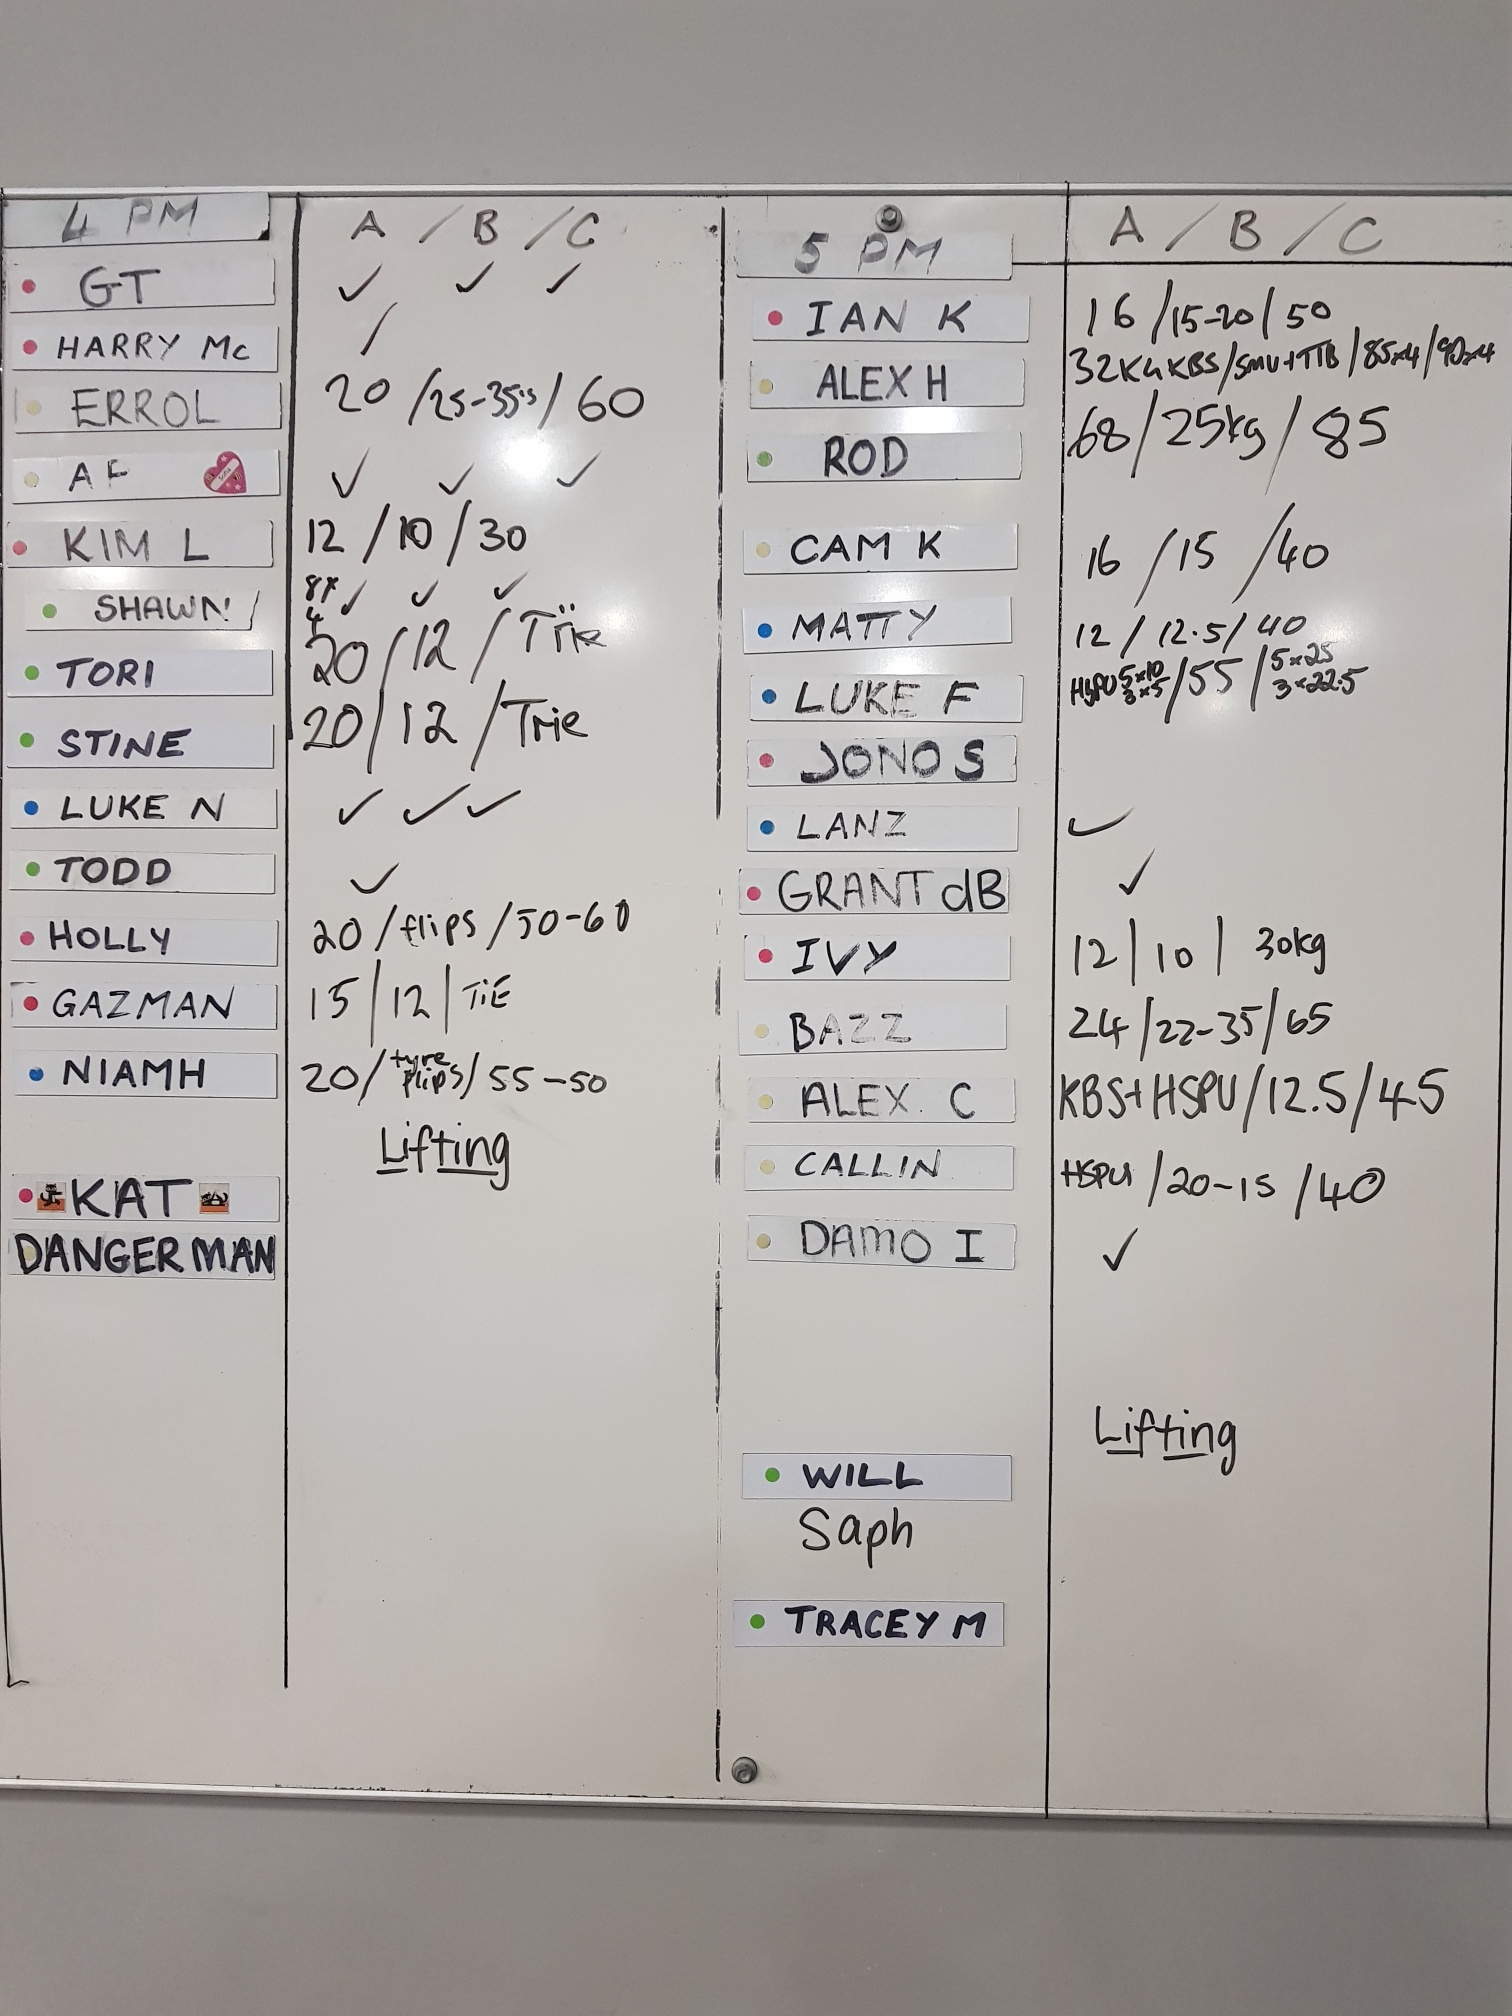 4 PM A / B / C
GT ✓ ✓ ✓
HARRY Mc /
ERROL 20 / 25-35's / 60
AF ✓ ✓ ✓
KIM L 12 / 10 / 30
SHAWN ✓ ✓ ✓
TORI 20 / 12 /
STINE 20 / 12 / Trie
LUKE N ✓ ✓ ✓
TODD ✓
HOLLY 20 / flips / 50-60
GAZMAN 15 | 12 | TiE
NIAMH 20 / tyre flips / 55-50
Lifting
KAT
DANGERMAN
5 PM A / B / C
IAN K 16 / 15-20 / 50
ALEX H 32KG KBS / 5MU+TTB / 85x4 / 90x4
ROD 68 / 25kg / 85
CAM K 16 / 15 / 40
MATTY 12 / 12.5 / 40
LUKE F HSPU 5x10 3x5 / 55 / 5x25 3x22.5
JONO S
LANZ ✓
GRANT dB ✓
IVY 12 | 10 | 30kg
BAZZ 24 / 22-35 / 65
ALEX. C KBS+HSPU / 12.5 / 45
CALLIN HSPU / 20-15 / 40
DAMO I ✓
Lifting
WILL
Saph
TRACEY M